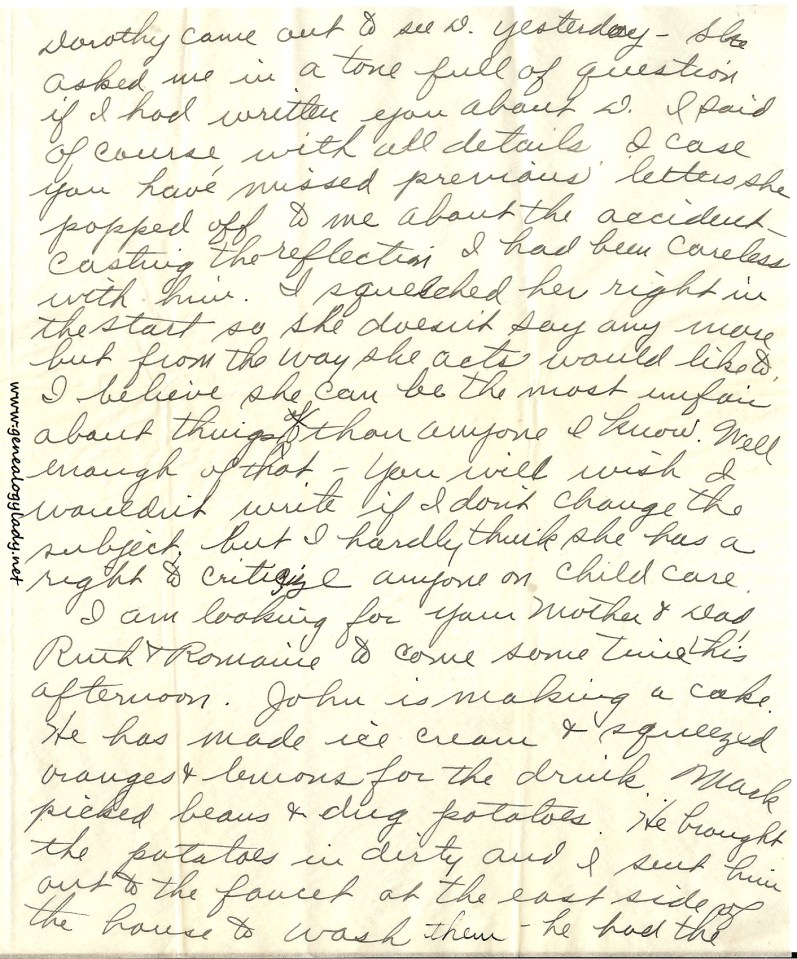 Dorothy came out to see D. yesterday - She
asked me in a tone full of question
if I had written you about D. I said
of course, with all details. I case
you have missed previous letters she
popped off to me about the accident -
casting the reflection I had been careless
with him. I squelched her right in
the start so she doesn't say any more
but from the way she acts would like to.
I believe she can be the most unfair
about things than anyone I know. Well
enough of that - you will wish I
wouldn't write if I don't change the
subject, but I hardly think she has a
right to criticize anyone on child care.
I am looking for your Mother & Dad,
Ruth & Romaine to come some time this
afternoon. John is making a cake.
He has made ice cream & squeezed
oranges & lemons for the drink. Mark
picked beans & dug potatoes. He brought
the potatoes in dirty and I sent him
out to the faucet at the east side of
the house to wash them - he had the
www.genealogylady.net